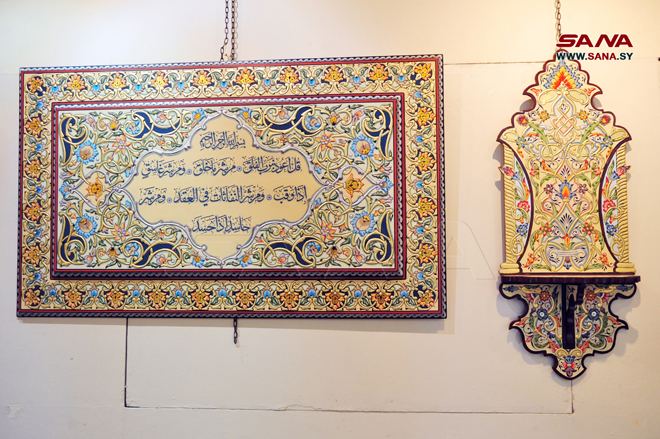 SANA
WWW.SANA.SY
بسم الله الرحمن الرحيم
قل اعوذ برب الفلق من شر ما خلق ومن شر غاسق
إذا وقب ومن شر النفاثات في العقد ومن شر
حاسد إذا حسد